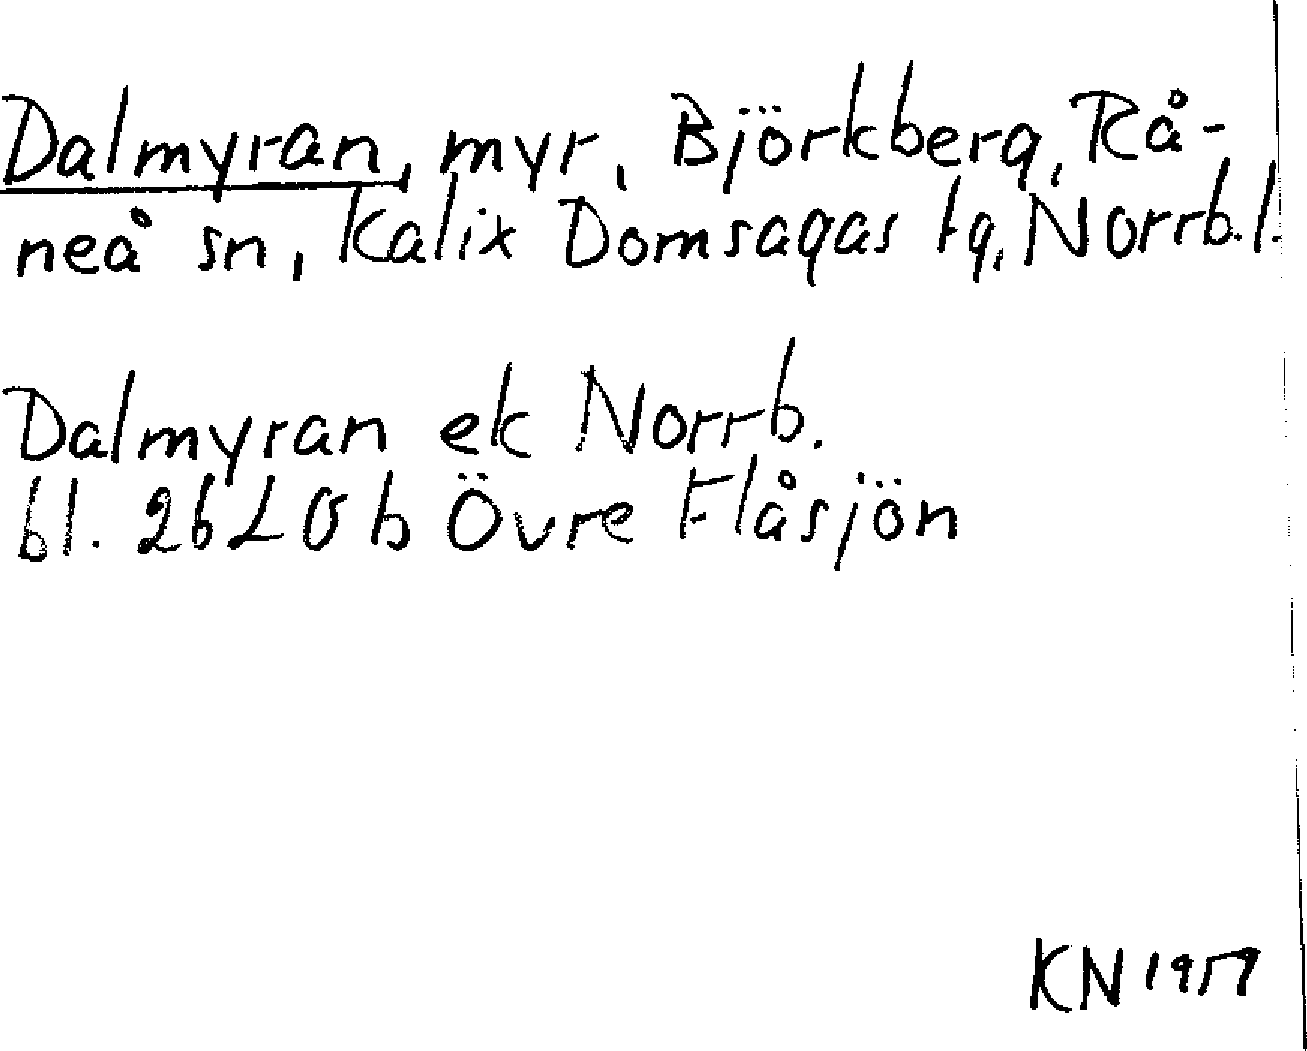 Dalmyran, myr, Björkberg, Rå-
neå sn, Kalix Domsagas tg, Norrb.l.
Dalmyran ek Norrb.
bl. 26 L 0 b Övre Flåsjön
KN 1959